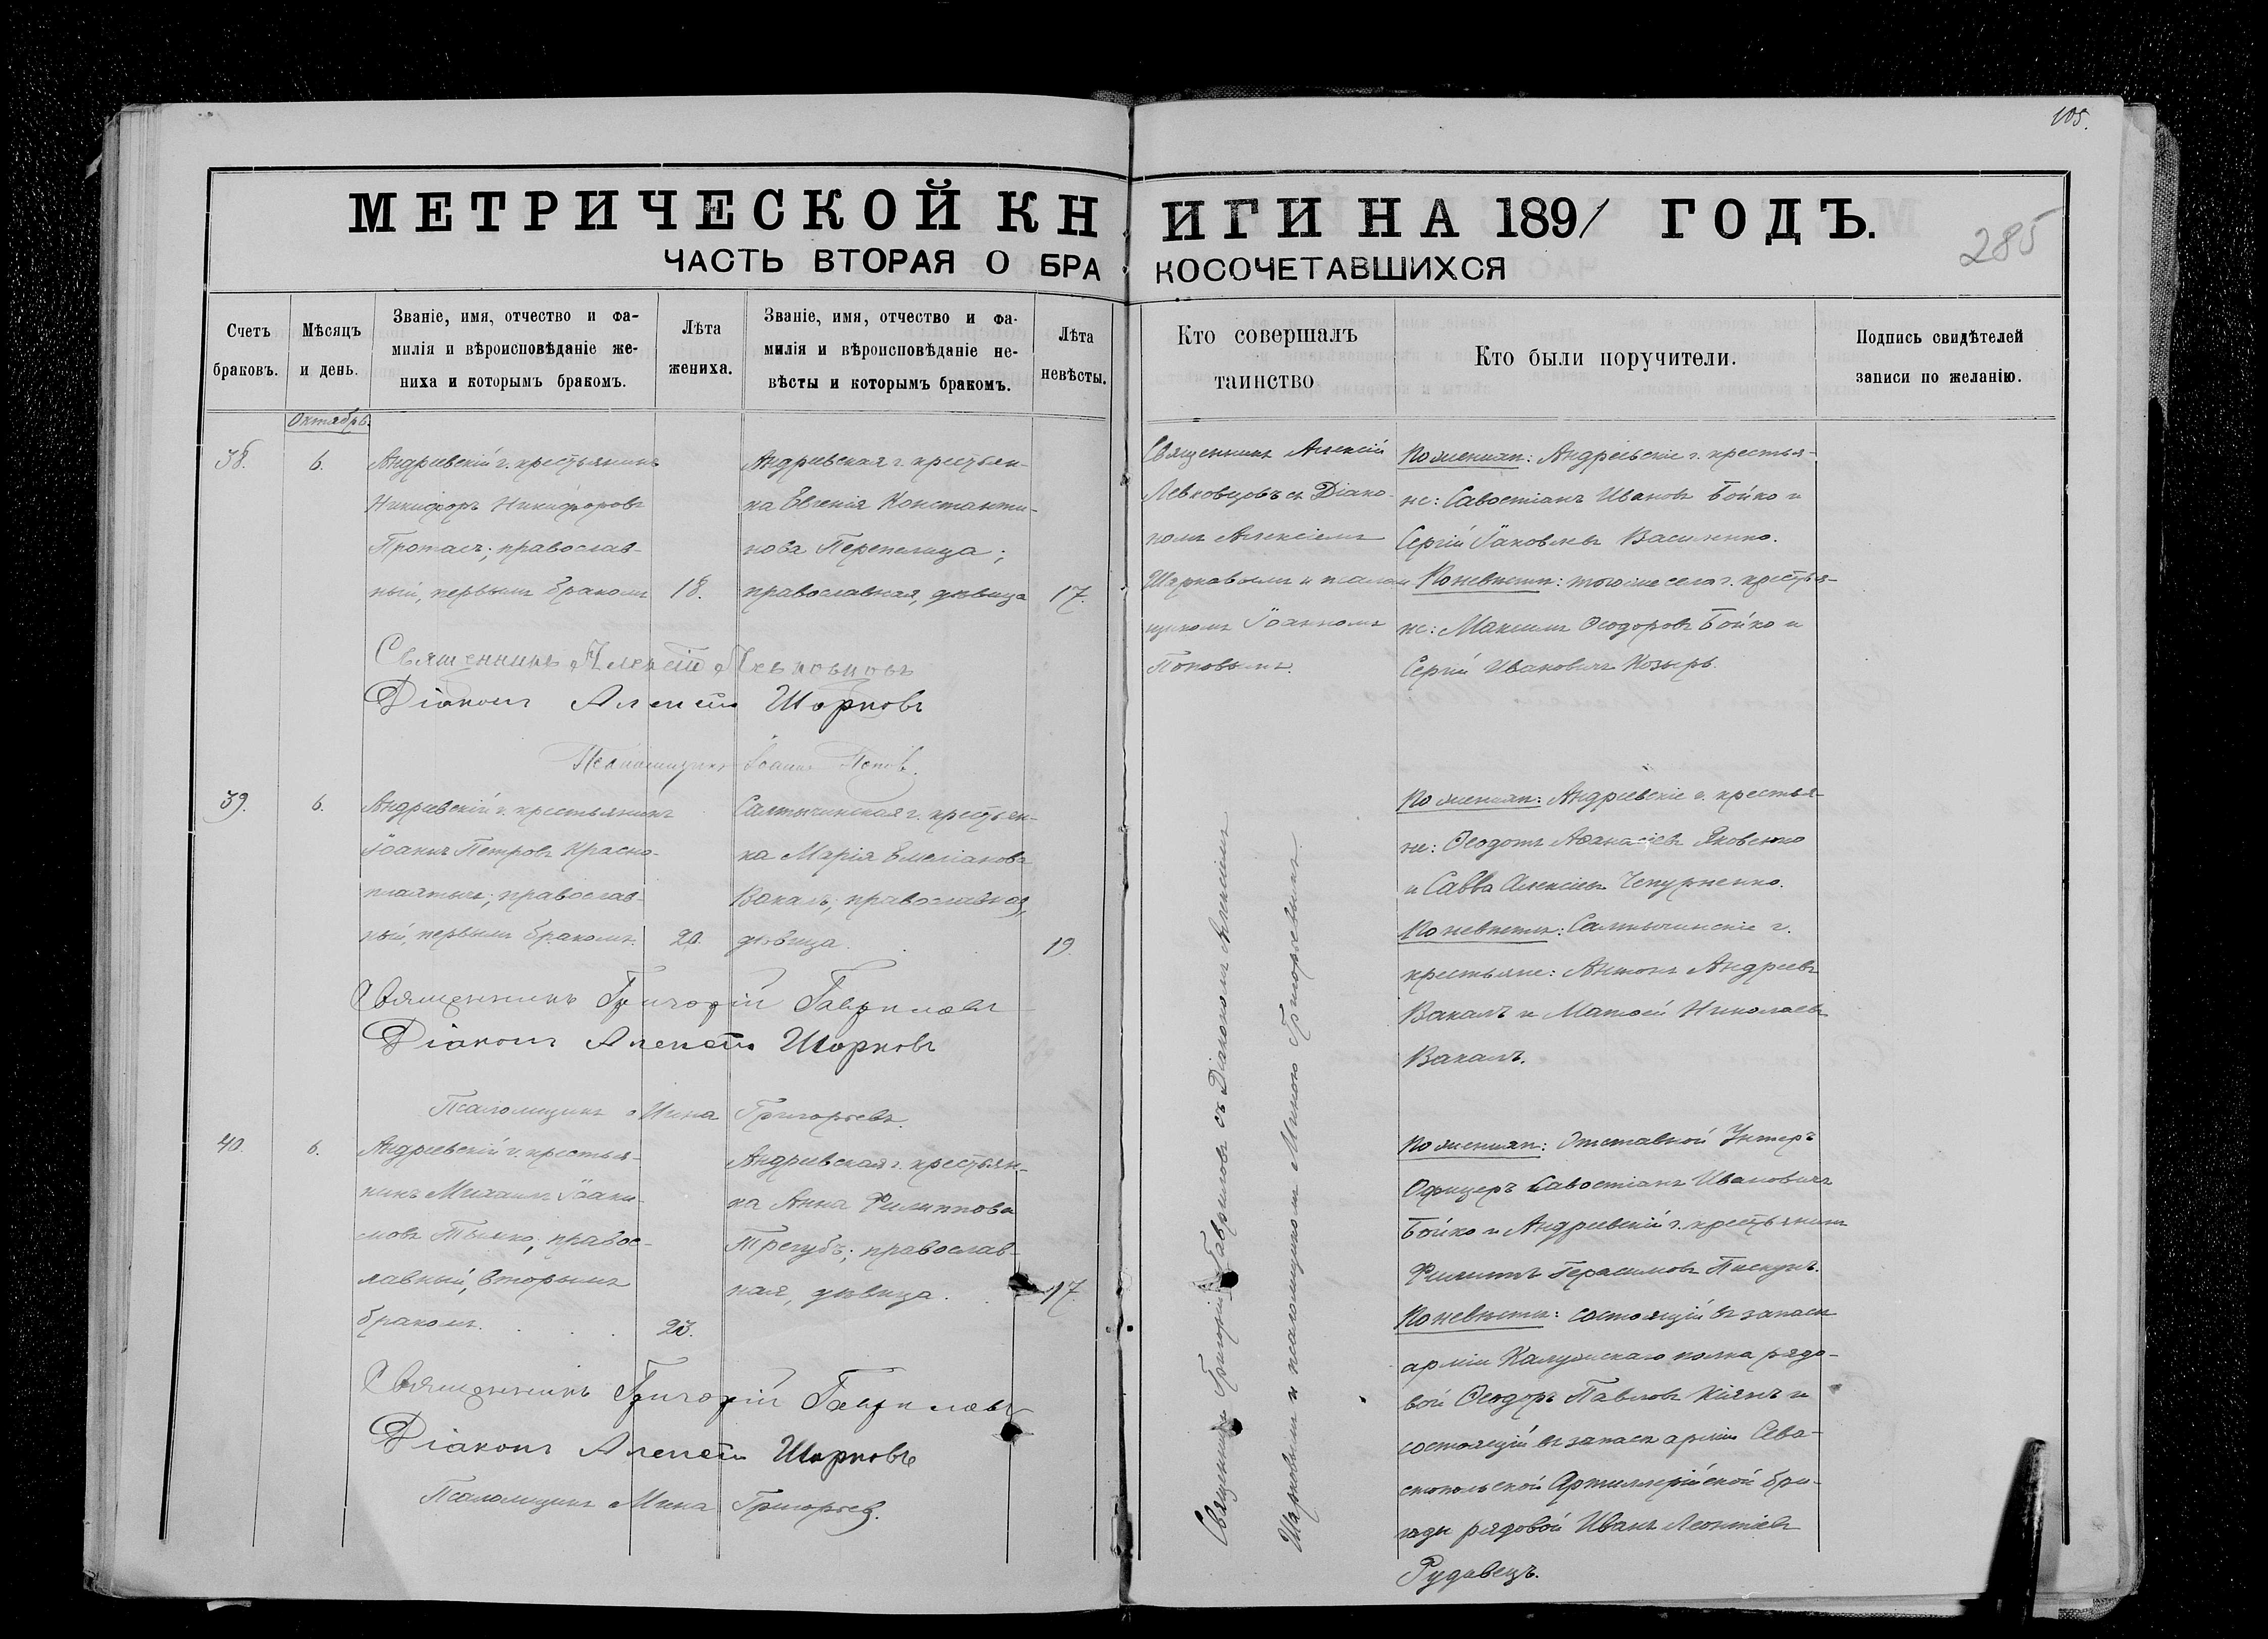 105.
285
МЕТРИЧЕСКОЙ КНИГИ НА 1891 ГОДЪ.
ЧАСТЬ ВТОРАЯ О БРАКОСОЧЕТАВШИХСЯ
Счетъ
браковъ.
Мѣсяцъ
и день.
Званіе, имя, отчество и фа-
милія и вѣроисповѣданіе же-
ниха и которымъ бракомъ.
Лѣта
жениха.
Званіе, имя, отчество и фа-
милія и вѣроисповѣданіе не-
вѣсты и которымъ бракомъ.
Лѣта
невѣсты.
Кто совершалъ
таинство
Кто были поручители.
Подпись свидѣтелей
записи по желанію.
Октябрь.
38.
6.
Андреевскій г. крестьянинъ
Никифоръ Никифоровъ
Протасъ; православ-
ный, первымъ бракомъ
18.
Андреевская г. крестьян-
ка Евгенія Константи-
нова Перепелица;
православная, дѣвица
17.
Священникъ Алексій
Левковцовъ съ Діако-
номъ Алексіемъ
Шарковымъ и псалом
щикомъ Іоанномъ
Поповымъ.
По женихѣ: Андреевскіе г. крестья-
не: Савостіанъ Ивановъ Бойко и
Сергій Іаковлевъ Василенко.
По невѣстѣ: того же села г. крестья-
не: Максимъ Ѳеодоровъ Бойко и
Сергій Ивановичъ Козырь.
Священникъ Алексій Левковцовъ
Діаконъ Алексій Шарковъ
Псаломщикъ Іоаннъ Поповъ.
39.
6.
Андреевскій г. крестьянинъ
Іоаннъ Петровъ Красно-
платыч; православ-
ный, первымъ бракомъ.
20.
Салтычинская г. крестьян-
ка Марія Емеліанова
Вакалъ; православная,
дѣвица.
19.
По женихѣ: Андреевскіе г. крестья-
не: Ѳеодотъ Аѳанасіевъ Яковенко
и Савва Алексіевъ Чепурненко.
По невѣстѣ: Салтычинскіе г.
крестьяне: Антонъ Андреевъ
Вакалъ и Матѳей Николаевъ
Вакалъ.
Священникъ Григорій Гавриловъ
Діаконъ Алексій Шарковъ
Псаломщикъ Мина Григорьевъ.
40.
6.
Андреевскій г. крестья-
нинъ Михаилъ Іоаки-
мовъ Тымко; правос-
лавный, вторымъ
бракомъ.
23.
Андреевская г. крестьян-
ка Анна Филиппова
Трегубъ; православ-
ная, дѣвица.
17.
По женихѣ: Отставной Унтеръ
Офицеръ Савостіанъ Ивановичъ
Бойко и Андреевскій г. крестьянинъ
Филиппъ Герасимовъ Пискунъ.
По невѣстѣ: состоящій въ запасѣ
арміи Калужскаго полка рядо-
вой Ѳеодоръ Павловъ Кіянъ и
состоящій въ запасѣ арміи Сева-
стопольской Артиллерійской бри-
гады рядовой Иванъ Леонтіевъ
Рудавецъ.
Священникъ Григорій Гавриловъ
Діаконъ Алексій Шарковъ
Псаломщикъ Мина Григорьевъ.
Священникъ Григорій Гавриловъ съ Діакономъ Алексіемъ
Шарковымъ и псаломщикомъ Миною Григорьевымъ.